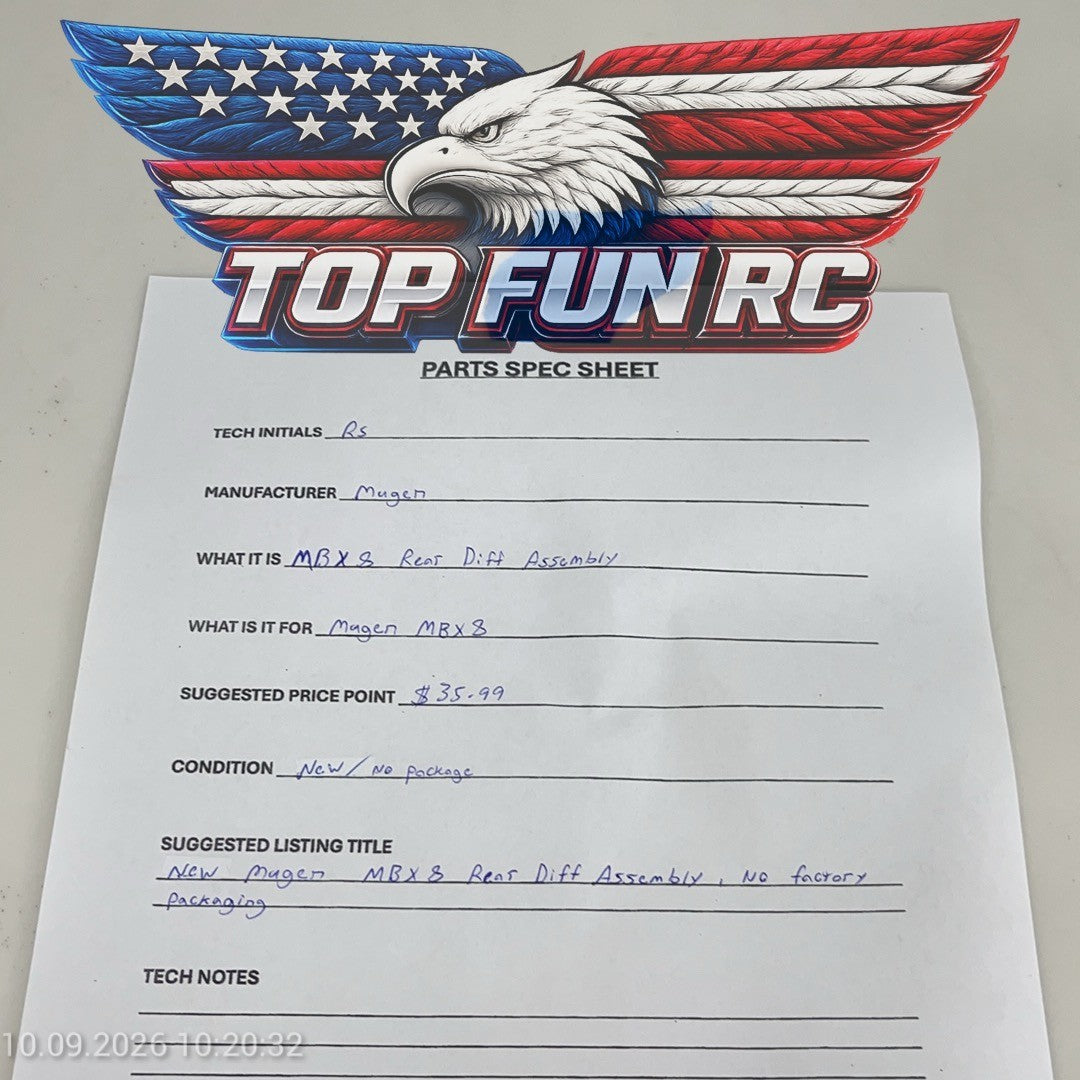 TOP FUN RC
PARTS SPEC SHEET
TECH INITIALS RS
MANUFACTURER Mugen
WHAT IT IS MBX8 Rear Diff Assembly
WHAT IS IT FOR Mugen MBX8
SUGGESTED PRICE POINT $35.99
CONDITION New/No package
SUGGESTED LISTING TITLE
New Mugen MBX8 Rear Diff Assembly, No factory
packaging
TECH NOTES
10.09.2026 10:20:32